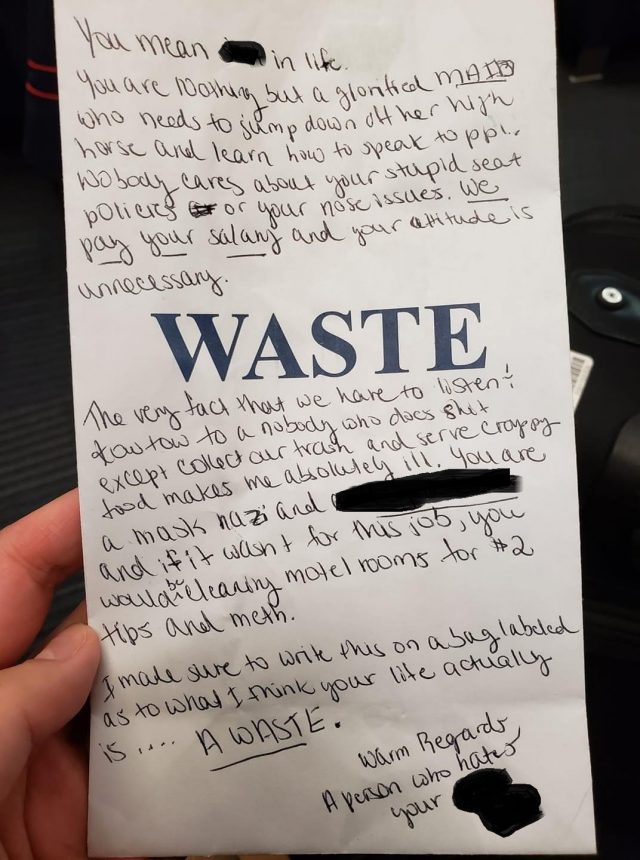 You mean in life.
You are nothing but a glorified MAID
who needs to jump down off her high
horse and learn how to speak to ppl.
Nobody cares about your stupid seat
policies or your nose issues. We
pay your salary and your attitude is
unnecessary.
WASTE
The very fact that we have to listen &
kowtow to a nobody who does shit
except collect our trash and serve crappy
food makes me absolutely ill. You are
a mask nazi and
and if it wasn't for this job, you
would be cleaning motel rooms for #2
tips and meth.
I made sure to write this on a bag labeled
as to what I think your life actually
is .... A WASTE.
Warm Regards
A person who hates
your